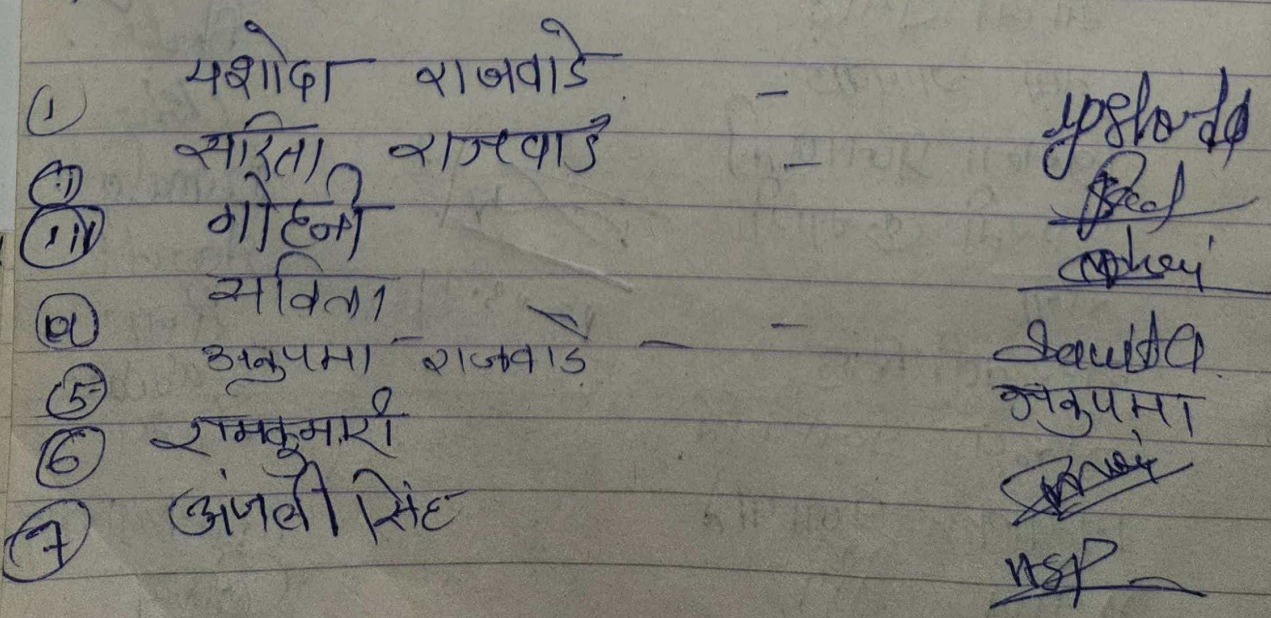 ① यशोदा राजवाडे - yashoda
ⅱ सरिता राजवाडे -
ⅲ मोहनी
सविता - Savita
⑤ अनुपमा राजवाडे - अनुपमा
⑥ रामकुमारी
⑦ अंजली सिंह